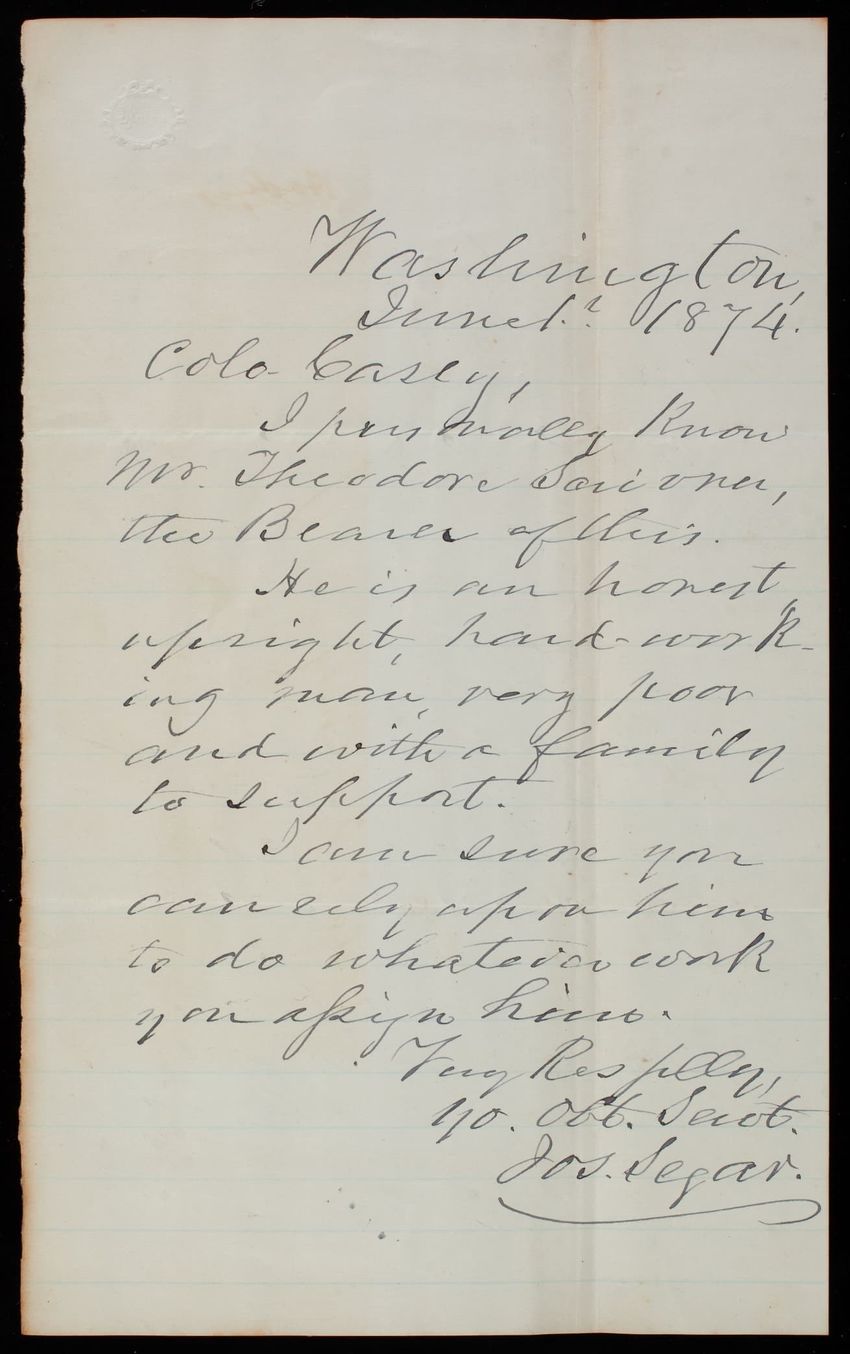 Washington,
June 1.t 1874.
Colo. Casey,
I personally know
Mr. Theodore Scrivner,
the Bearer of this.
He is an honest,
upright, hard-work-
ing man, very poor
and with a family
to support.
I am sure you
can rely upon him
to do whatever work
you assign him.
Very Respflly,
yo. Obt. Servt.
Jos. Segar.